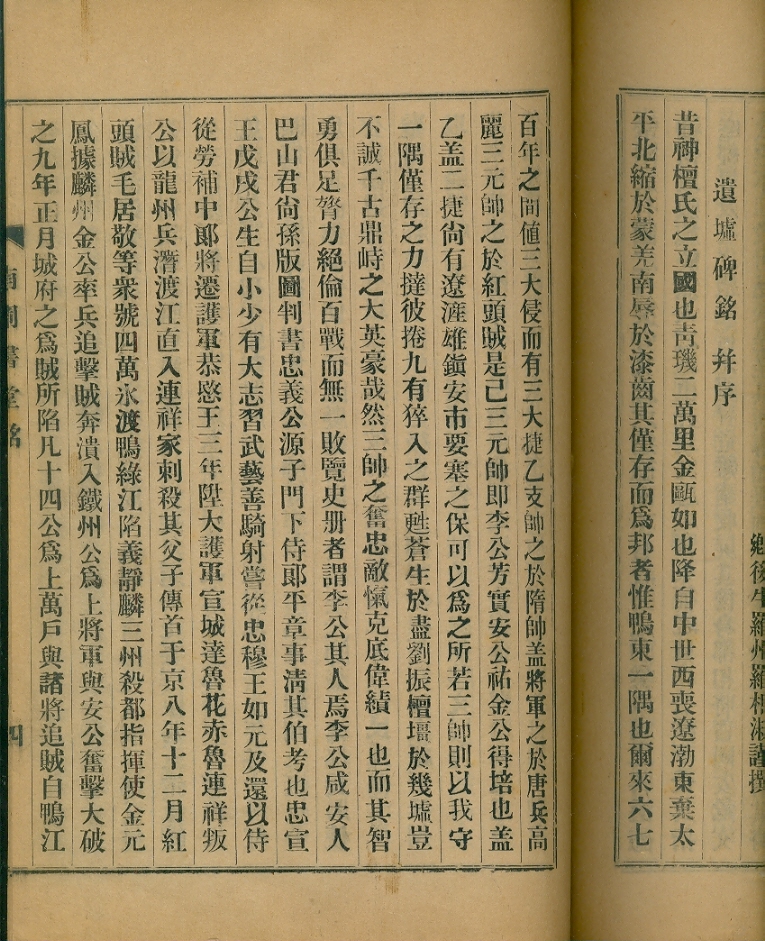 鄉後生羅州羅相淑謹撰
遺墟碑銘 幷序
昔神檀氏之立國也靑璣二萬里金甌如也降自中世西喪遼渤東棄太
平北縮於蒙羌南辱於漆齒其僅存而爲邦者惟鴨東一隅也爾來六七
百年之間値三大侵而有三大捷乙支帥之於隋帥盖將軍之於唐兵高
麗三元帥之於紅頭賊是已三元帥即李公芳實安公祐金公得培也盖
乙盖二捷尙有遼漄雄鎭安市要塞之保可以爲之所若三帥則以我守
一隅僅存之力撻彼捲九有猝入之群甦蒼生於盡劉振檀壃於幾墟豈
不誠千古鼎峙之大英豪哉然三帥之奮忠敵愾克底偉績一也而其智
勇俱足膂力絕倫百戰而無一敗覽史册者謂李公其人焉李公咸安人
巴山君尙孫版圖判書忠義公源子門下侍郞平章事淸其伯考也忠宣
王戊戌公生自小少有大志習武藝善騎射嘗從忠穆王如元及還以侍
從勞補中郞將遷護軍恭愍王三年陞大護軍宣城達魯花赤魯連祥叛
公以龍州兵潛渡江直入連祥家刺殺其父子傳首于京八年十二月紅
頭賊毛居敬等衆號四萬氷渡鴨綠江陷義靜麟三州殺都指揮使金元
鳳據麟州金公率兵追擊賊奔潰入鐵州公爲上將軍與安公奮擊大破
之九年正月城府之爲賊所陷凡十四公爲上萬戶與諸將追賊自鴨江
四